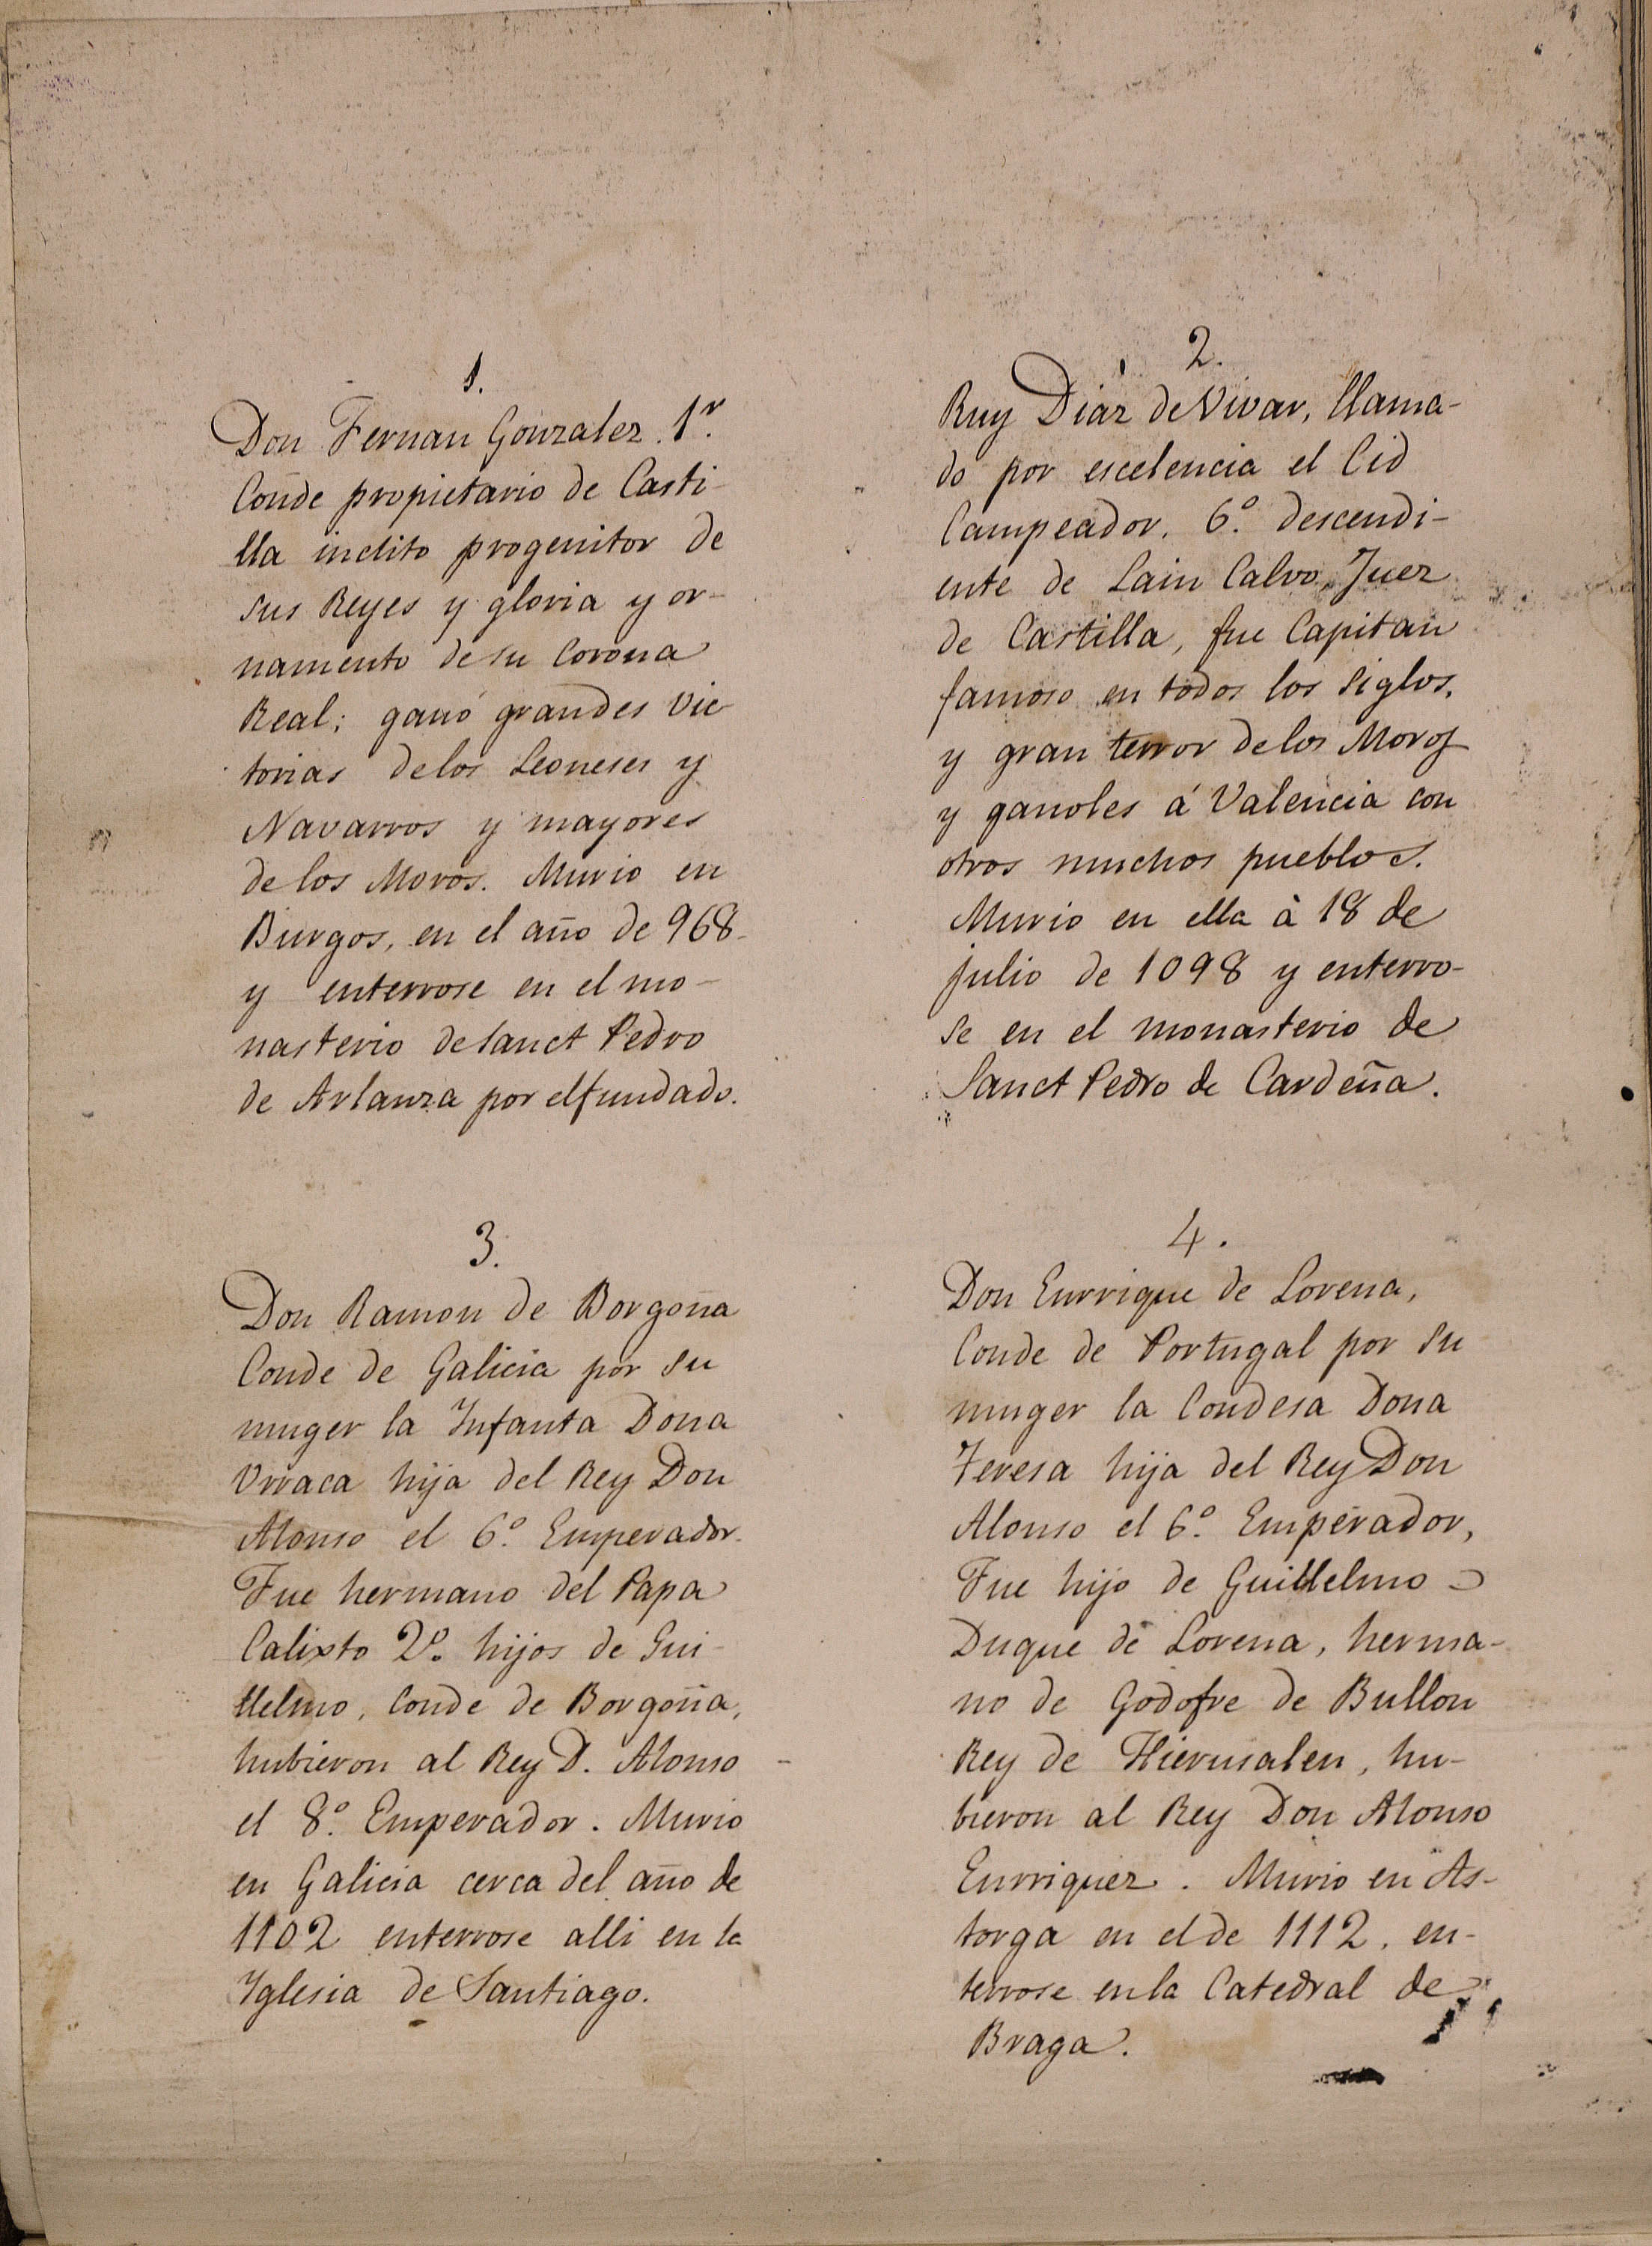 1.
Don Fernan Gonzalez. 1r.
Conde propietario de Casti-
lla inclito progenitor de
sus Reyes y gloria y or-
namento de su Corona
Real; ganó grandes vic-
torias de los Leoneses y
Navarros y mayores
de los Moros. Murio en
Burgos, en el año de 968
y enterrose en el mo-
nasterio de Sanct Pedro
de Arlanza por el fundado.
2.
Ruy Diaz de Vivar, llama-
do por escelencia el Cid
Campeador. 6.º descendi-
ente de Lain Calvo, Juez
de Castilla, fue Capitan
famoso en todos los siglos,
y gran terror de los Moros
y ganoles á Valencia con
otros muchos pueblos.
Murio en ella à 18 de
julio de 1098 y enterro-
se en el monasterio de
Sanct Pedro de Cardeña.
3.
Don Ramon de Borgoña
Conde de Galicia por su
muger la Infanta Dona
Urraca hija del Rey Don
Alonso el 6.º Emperador.
Fue hermano del Papa
Calixto 2.º hijos de Gui-
llelmo, Conde de Borgoña,
hubieron al Rey D. Alonso
el 8.º Emperador. Murio
en Galicia cerca del año de
1102 enterrose alli en la
Yglesia de Santiago.
4.
Don Enrrique de Lorena,
Conde de Portugal por su
muger la Condesa Dona
Teresa hija del Rey Don
Alonso el 6.º Emperador,
Fue hijo de Guillelmo
Duque de Lorena, herma-
no de Godofre de Bullon
Rey de Hierusalen, hu-
bieron al Rey Don Alonso
Enrriquez. Murio en As-
torga en el de 1112, en-
terrose en la Catedral de
Braga.